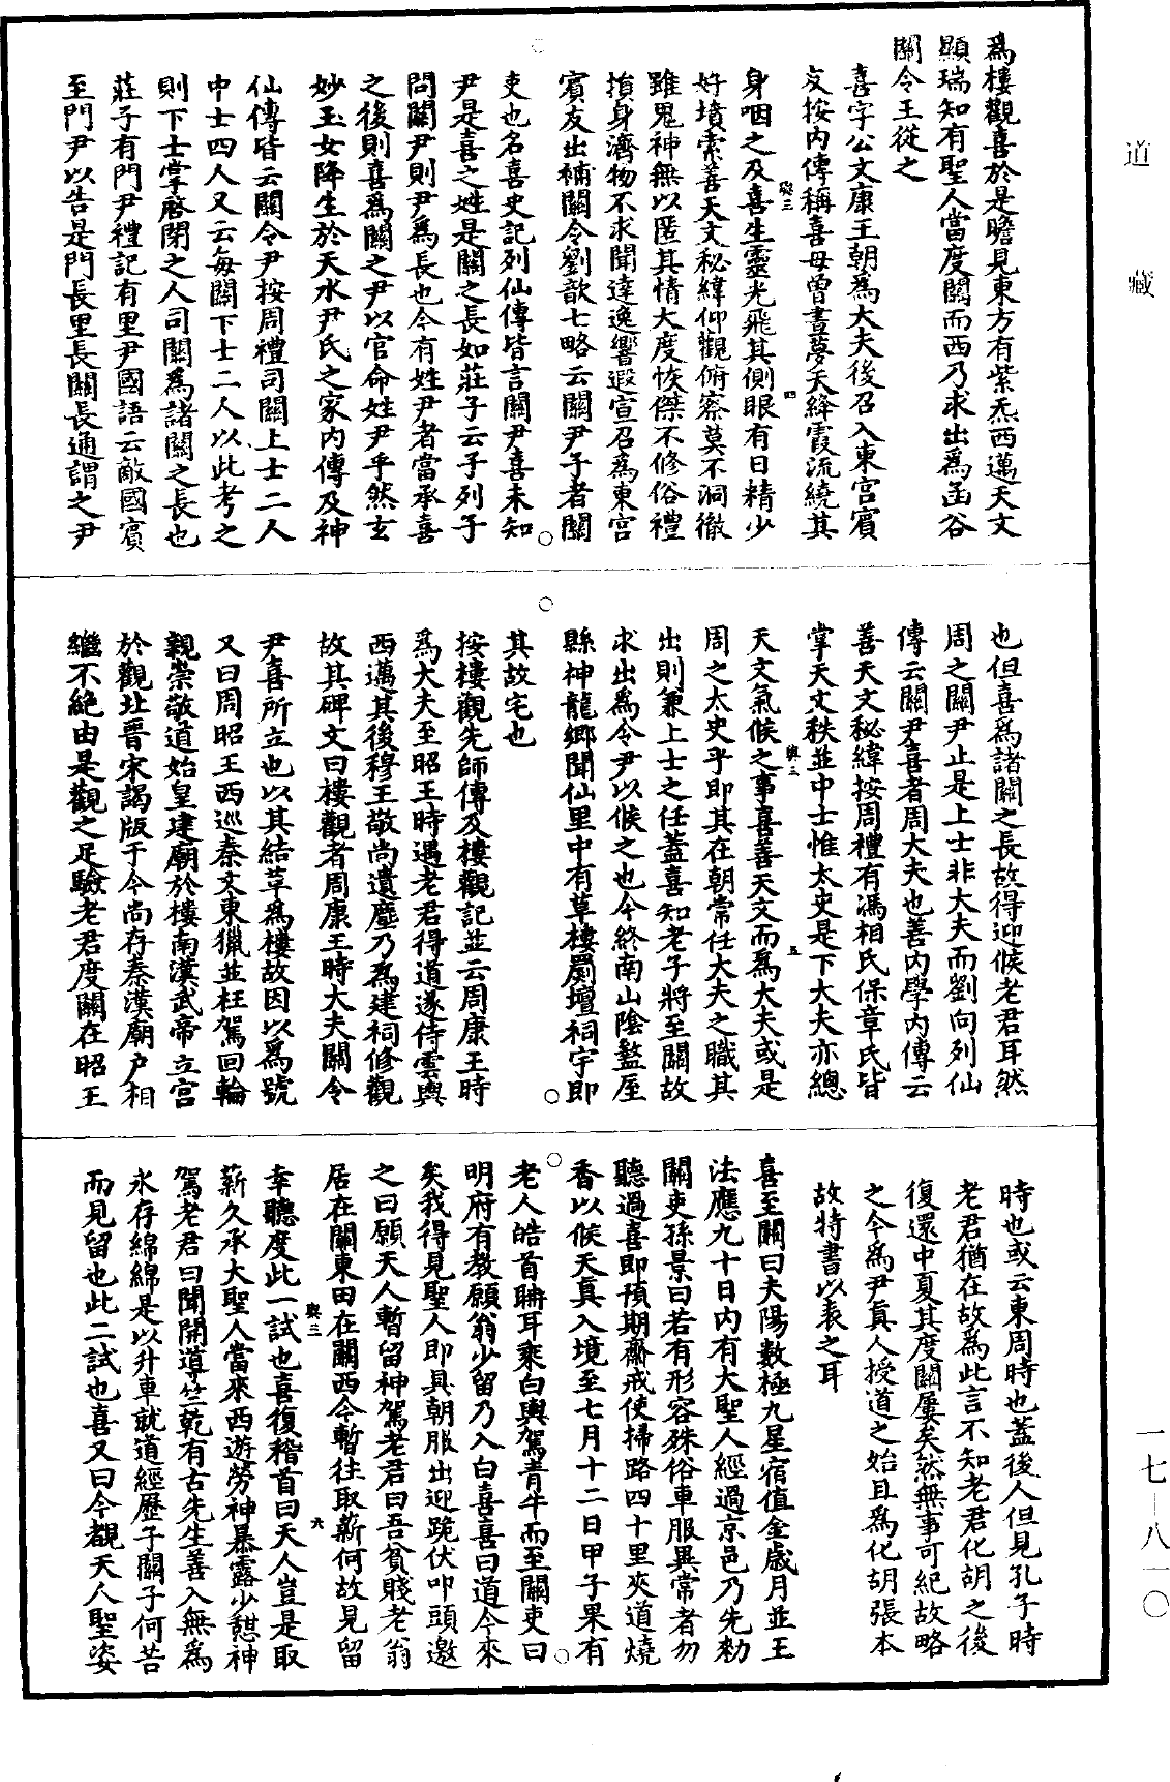 道藏
一七—八一〇
爲樓觀喜於是瞻見東方有紫炁西邁天文
顯瑞知有聖人當度關而西乃求出爲函谷
關令王從之
喜字公文康王朝爲大夫後召入東宮賓
友按內傳稱喜母曾晝夢天絳霞流繞其
與三
四
身咽之及喜生靈光飛其側眼有日精少
好墳索善天文秘緯仰觀俯察莫不洞徹
雖鬼神無以匿其情大度恢傑不修俗禮
損身濟物不求聞達逸響遐宣召爲東宮
賓友出補關令劉歆七略云關尹子者關
吏也名喜史記列仙傳皆言關尹喜未知
尹是喜之姓是關之長如莊子云子列子
問關尹則尹爲長也今有姓尹者當承喜
之後則喜爲關之尹以官命姓尹乎然玄
妙玉女降生於天水尹氏之家內傳及神
仙傳皆云關令尹按周禮司關上士二人
中士四人又云每關下士二人以此考之
則下士掌啓閉之人司關爲諸關之長也
莊子有門尹禮記有里尹國語云敵國賓
至門尹以告是門長里長關長通謂之尹
也但喜爲諸關之長故得迎候老君耳然
周之關尹止是上士非大夫而劉向列仙
傳云關尹喜者周大夫也善內學內傳云
善天文秘緯按周禮有馮相氏保章氏皆
掌天文秩並中士惟太史是下大夫亦總
與三
五
天文氣候之事喜善天文而爲大夫或是
周之太史乎即其在朝常任大夫之職其
出則兼上士之任蓋喜知老子將至關故
求出爲令尹以候之也今終南山陰盩厔
縣神龍鄉聞仙里中有草樓觀壇祠宇即
其故宅也
按樓觀先師傳及樓觀記並云周康王時
爲大夫至昭王時遇老君得道遂侍雲輿
西邁其後穆王敬尚遺塵乃爲建祠修觀
故其碑文曰樓觀者周康王時大夫關令
尹喜所立也以其結草爲樓故因以爲號
又曰周昭王西巡秦文東獵並枉駕回輪
親崇敬道始皇建廟於樓南漢武帝立宮
於觀北晉宋謁版于今尚存秦漢廟户相
繼不絕由是觀之足驗老君度關在昭王
時也或云東周時也蓋後人但見孔子時
老君猶在故爲此言不知老君化胡之後
復還中夏其度關屢矣然無事可紀故略
之今爲尹眞人授道之始且爲化胡張本
故特書以表之耳
喜至關曰夫陽數極九星宿值金歲月並王
法應九十日內有大聖人經過京邑乃先勑
關吏孫景曰若有形容殊俗車服異常者勿
聽過喜即預期齋戒使掃路四十里夾道燒
香以候天眞入境至七月十二日甲子果有
老人皓首聃耳乘白輿駕青牛而至關吏曰
明府有教願翁少留乃入白喜喜曰道今來
矣我得見聖人即具朝服出迎跪伏叩頭邀
之曰願天人暫留神駕老君曰吾貧賤老翁
居在關東田在關西今暫往取薪何故見留
與三
六
幸聽度此一試也喜復稽首曰天人豈是取
薪久承大聖人當來西遊勞神暴露少憩神
駕老君曰聞開導竺乾有古先生善入無爲
永存綿綿是以升車就道經歷子關子何苦
而見留也此二試也喜又曰今覩天人聖姿